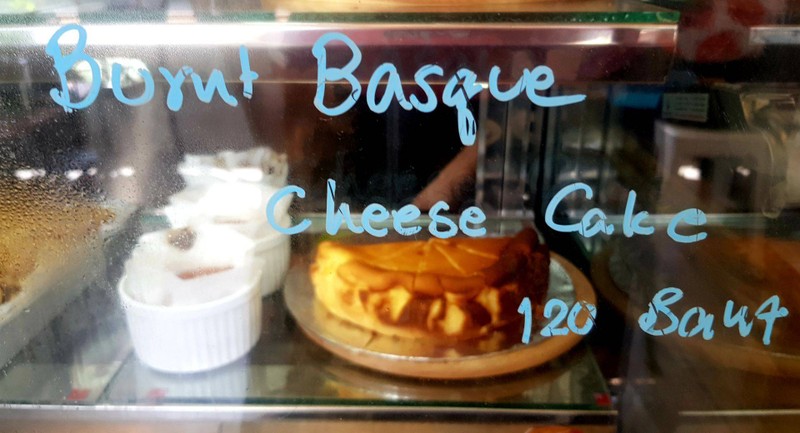 Burnt Basque
Cheese Cake
120 Baht